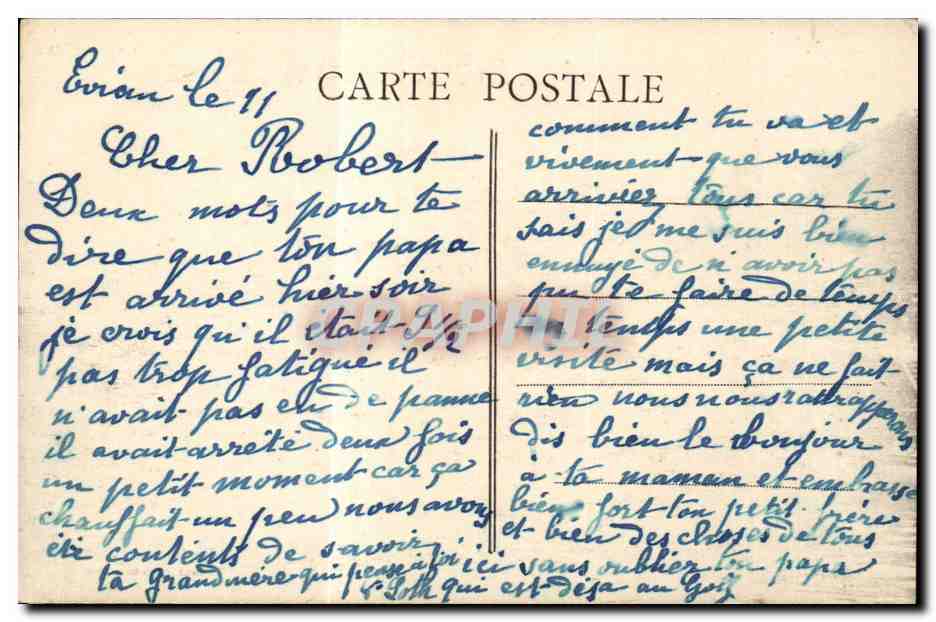 Evian le 11
CARTE POSTALE
Cher Robert
Deux mots pour te
dire que ton papa
est arrivé hier soir
je crois qu'il était 9 1/2
pas trop fatigué il
n'avait pas eu de panne
il avait arrêté deux fois
un petit moment car ça
chauffait un peu nous avons
été contents de savoir
comment tu va et
vivement que vous
arriviez tous car tu
sais je me suis bien
ennuyé de n'avoir pas
pu te faire de temps
en temps une petite
visite mais ça ne fait
rien nous nous rattraperons
dis bien le bonjour
à ta maman et embrasse
bien fort ton petit frère
et bien des choses de tous
ici sans oublier ton papa
qui est déja au Golf
ta grandmère qui pense à toi